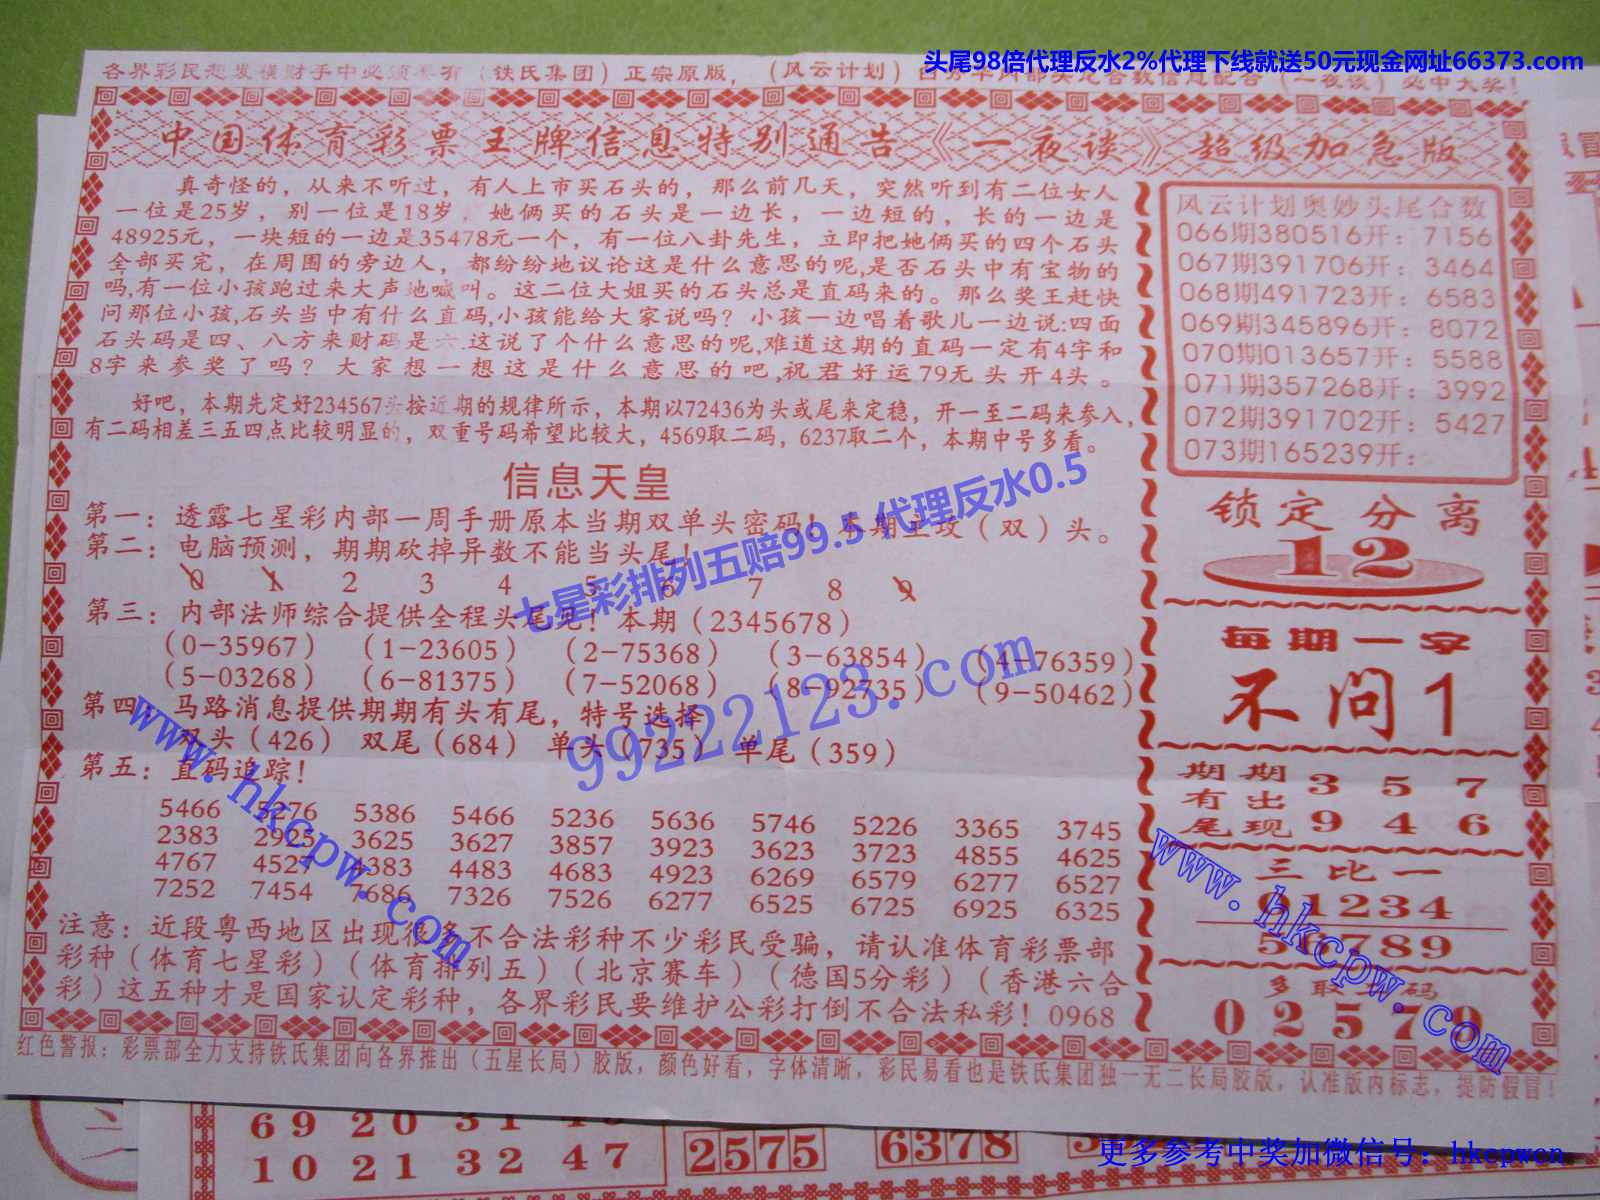 头尾98倍代理反水2%代理下线就送50元现金网址66373.com
各界彩民想发横财手中必须 有（铁氏集团）正宗原版，（风云计划） 头尾合数信息配合（一夜谈）必中大奖！
中国体育彩票王牌信息特别通告《一夜谈》超级加急版
真奇怪的，从来不听过，有人上市买石头的，那么前几天，突然听到有二位女人
一位是25岁，别一位是18岁，她俩买的石头是一边长，一边短的，长的一边是
48925元，一块短的一边是35478元一个，有一位八卦先生，立即把她俩买的四个石头
全部买完，在周围的旁边人，都纷纷地议论这是什么意思的呢,是否石头中有宝物的
吗,有一位小孩跑过来大声地喊叫。这二位大姐买的石头总是直码来的。那么奖王赶快
问那位小孩,石头当中有什么直码,小孩能给大家说吗？小孩一边唱着歌儿一边说:四面
石头码是四、八方来财码是六.这说了个什么意思的呢,难道这期的直码一定有4字和
8字来参奖了吗？大家想一想这是什么意思的吧,祝君好运79无头开4头。
好吧，本期先定好234567头按近期的规律所示，本期以72436为头或尾来定稳，开一至二码来参入，
有二码相差三五四点比较明显的，双重号码希望比较大，4569取二码，6237取二个，本期中号多看。
信息天皇
第一：透露七星彩内部一周手册原本当期双单头密码！本期主攻（双）头。
第二：电脑预测，期期砍掉异数不能当头尾！
0 1 2 3 4 5 6 7 8 9
第三：内部法师综合提供全程头尾见！本期（2345678）
（0-35967）（1-23605）（2-75368）（3-63854）（4-76359）
（5-03268）（6-81375）（7-52068）（8-92735）（9-50462）
第四：马路消息提供期期有头有尾，特号选择
双头（426） 双尾（684） 单头（735） 单尾（359）
第五：直码追踪！
5466 5276 5386 5466 5236 5636 5746 5226 3365 3745
2383 2925 3625 3627 3857 3923 3623 3723 4855 4625
4767 4527 4383 4483 4683 4923 6269 6579 6277 6527
7252 7454 7686 7326 7526 6277 6525 6725 6925 6325
注意：近段粤西地区出现很多不合法彩种不少彩民受骗，请认准体育彩票部
彩种（体育七星彩）（体育排列五）（北京赛车）（德国5分彩）（香港六合
彩）这五种才是国家认定彩种，各界彩民要维护公彩打倒不合法私彩！0968
风云计划奥妙头尾合数
066期380516开：7156
067期391706开：3464
068期491723开：6583
069期345896开：8072
070期013657开：5588
071期357268开：3992
072期391702开：5427
073期165239开：
锁定分离
12
每期一字
不问1
期期 3 5 7
有出
尾现 9 4 6
三比一
01234
56789
多取 码
0 2 5 7 9
红色警报：彩票部全力支持铁氏集团向各界推出（五星长局）胶版，颜色好看，字体清晰，彩民易看也是铁氏集团独一无二长局胶版，认准版内标志，提防假冒！
七星彩排列五赔99.5 代理反水0.5
99222123.com
www.hkcpw.com
www.hkcpw.com
69 20 31
10 21 32 47
2575 6378
更多参考中奖加微信号：hkcpwcn